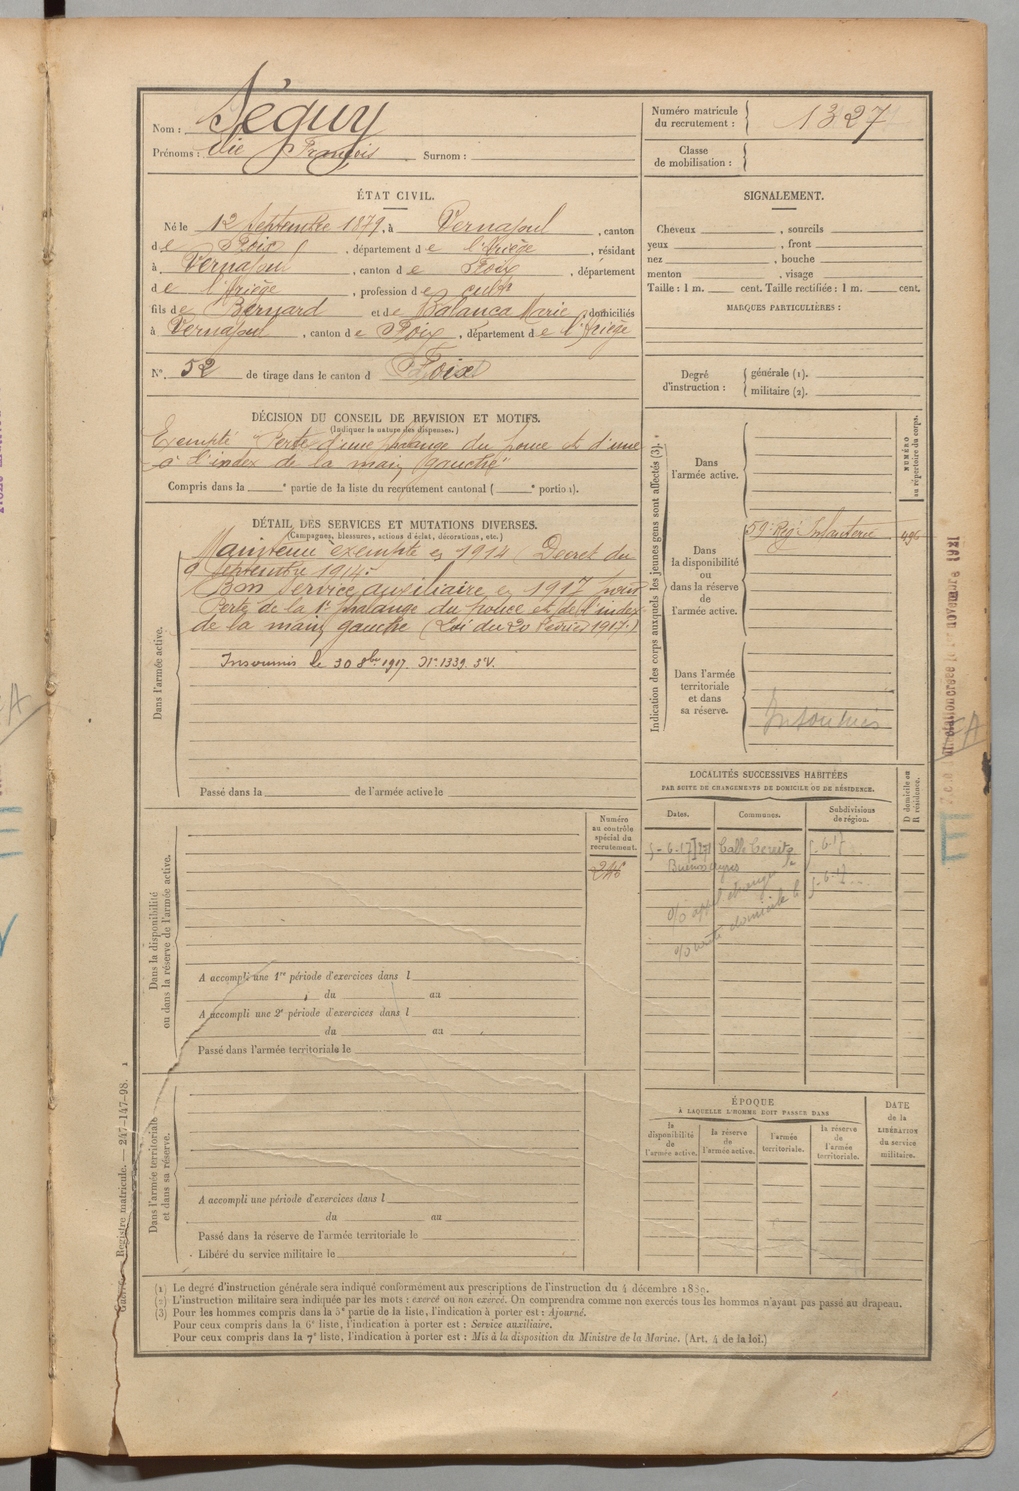 Nom : Séguy
Prénoms : Vie François Surnom :
Numéro matricule du recrutement : 1327
Classe de mobilisation :
ÉTAT CIVIL.
Né le 12 Septembre 1879, à Vernajoul, canton
de Foix, département de l'Ariège, résidant
à Vernajoul, canton de Foix, département
de l'Ariège, profession de cultr
fils de Bernard et de Balança Marie domiciliés
à Vernajoul, canton de Foix, département de l'Ariège
N° 52 de tirage dans le canton d Foix
SIGNALEMENT.
Cheveux , sourcils
yeux , front
nez , bouche
menton , visage
Taille : 1 m. cent. Taille rectifiée : 1 m. cent.
MARQUES PARTICULIÈRES :
Degré d'instruction : générale (1).
militaire (2).
DÉCISION DU CONSEIL DE REVISION ET MOTIFS.
(Indiquer la nature des dispenses.)
Exempté Perte d'une phalange du pouce et d'une
à l'index de la main gauche"
Compris dans la e partie de la liste du recrutement cantonal ( e portion).
DÉTAIL DES SERVICES ET MUTATIONS DIVERSES.
(Campagnes, blessures, actions d'éclat, décorations, etc.)
Dans l'armée active.
Maintenu exempté en 1914 Décret du
9 Septembre 1914.
Bon service auxiliaire en 1917 pour
Perte de la 1e phalange du pouce et de l'index
de la main gauche (Loi du 20 Février 1917.)
Insoumis le 30 8bre 1917. N° 1339. S V.
Passé dans la de l'armée active le
Indication des corps auxquels les jeunes gens sont affectés (3).
NUMÉRO au répertoire du corps.
Dans l'armée active.
Dans la disponibilité ou dans la réserve de l'armée active.
59e Rég. Infanterie
Dans l'armée territoriale et dans sa réserve.
Insoumis
LOCALITÉS SUCCESSIVES HABITÉES
PAR SUITE DE CHANGEMENTS DE DOMICILE OU DE RÉSIDENCE.
D domicile ou R résidence.
Dates. Communes. Subdivisions de région.
5-6-17 Calle 5-6-17
Buenos Ayres
5-6-17
Numéro au contrôle spécial du recrutement.
246
Dans la disponibilité ou dans la réserve de l'armée active.
A accompli une 1re période d'exercices dans l
du au
A accompli une 2e période d'exercices dans l
du au
Passé dans l'armée territoriale le
Dans l'armée territoriale et dans sa réserve.
A accompli une période d'exercices dans l
du au
Passé dans la réserve de l'armée territoriale le
Libéré du service militaire le
ÉPOQUE
À LAQUELLE L'HOMME DOIT PASSER DANS
la disponibilité de l'armée active.
la réserve de l'armée active.
l'armée territoriale.
la réserve de l'armée territoriale.
DATE de la LIBÉRATION du service militaire.
Registre matricule. — 247-147-98.
(1) Le degré d'instruction générale sera indiqué conformément aux prescriptions de l'Instruction du 4 décembre 1889.
(2) L'instruction militaire sera indiquée par les mots : exercé ou non exercé. On comprendra comme non exercés tous les hommes n'ayant pas passé au drapeau.
(3) Pour les hommes compris dans la 5e partie de la liste, l'indication à porter est : Ajourné.
Pour ceux compris dans la 6e liste, l'indication à porter est : Service auxiliaire.
Pour ceux compris dans la 7e liste, l'indication à porter est : Mis à la disposition du Ministre de la Marine. (Art. 4 de la loi.)